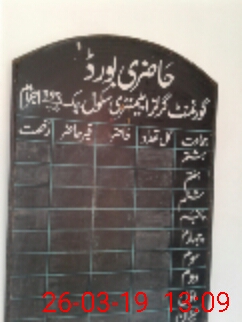 حاضری بورڈ
گورنمنٹ گرلز ایلیمنٹری سکول چک
جماعت کل تعداد حاضر غیر حاضر رخصت
ہشتم
ہفتم
ششم
پنجم
چہارم
سوم
دوم
26-03-19 13:09